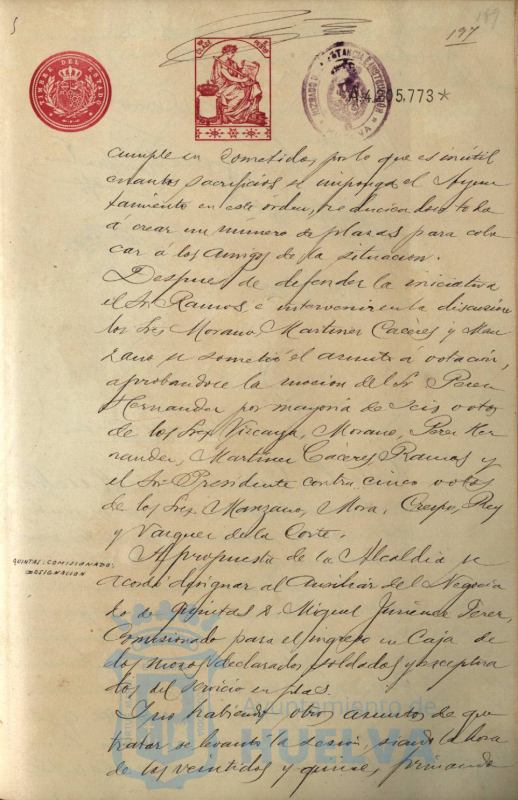 197
189
TIMBRE DEL ESTADO
A4.205.773*
cumple su cometido, por lo que es inútil
cuantos sacrificios se imponga el Ayun-
tamiento en este orden, reducida toda
á crear un número de plazas para colo
car á los amigos de la situacion.
Despues de defender la iniciativa
el Sr. Ramos, é intervenir en la discusion
los Sres. Morano, Martinez Caceres y Man
zano se sometió el asunto á votación,
aprobandose la mocion del Sr. Perez
Hernandez por mayoria de seis votos
de los Sres. Vizcaya, Morano, Perez Her
nandez, Martinez Caceres, Ramos y
el Sr. Presidente contra cinco votos
de los Sres. Manzano, Mora, Crespo, Rey
y Vazquez de la Corte.
QUINTAS: COMISIONADO:
DESIGNACION
A propuesta de la Alcaldia se
acordo designar al Auxiliar del Negocia
do de Quintas D. Miguel Jimenez Perez,
Comisionado para el ingreso en Caja de
los mozos declarados soldados y exceptua
dos del servicio en filas.
Y no habiendo otros asuntos de que
tratar se levantó la sesion, siendo la hora
de las veintidos y quince, firmando
Ayuntamiento de
HUELVA